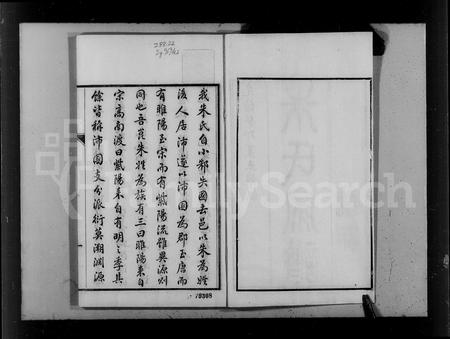 我朱氏自小邾失國去邑以朱為姓
後人居沛遂以沛國為郡至唐而
有睢陽至宋而有紫陽流雖異源則
同也吾莨朱姓為族有三曰睢陽来自
宗高南渡曰紫陽来自有明之季其
餘皆稱沛國支分派衍莫溯淵源
19398
FamilySearch